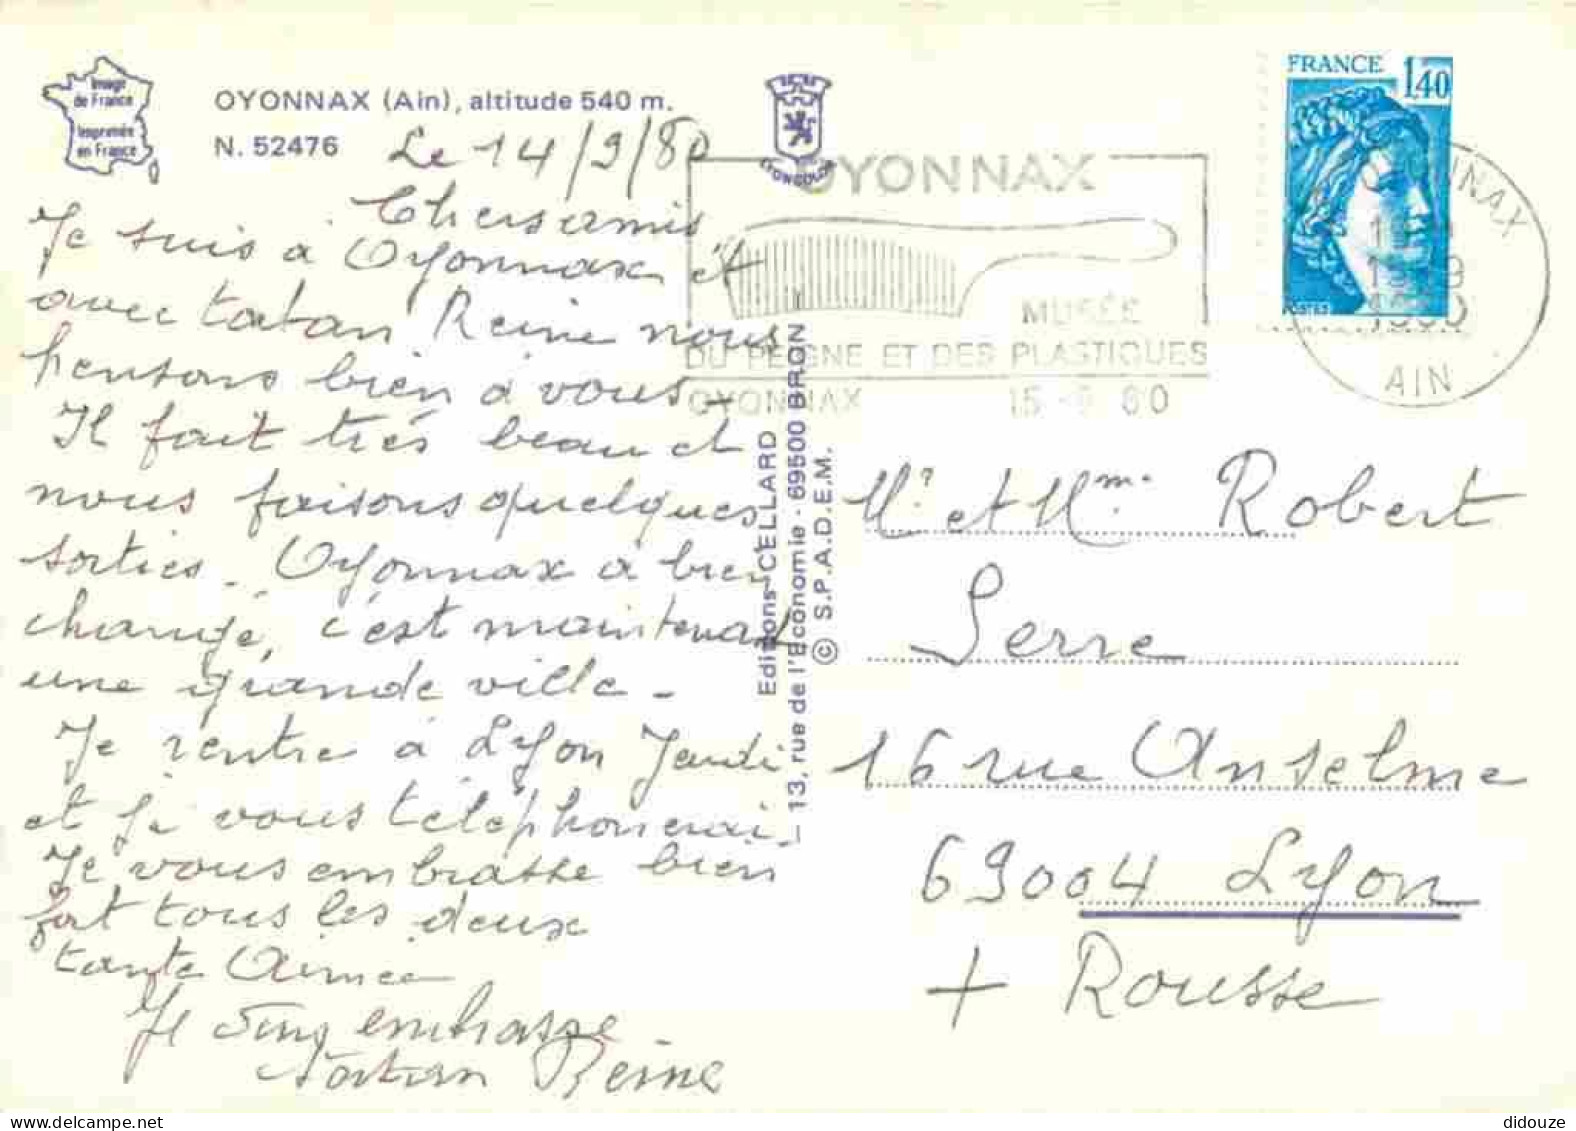 Image
de France
Imprimée
en France
OYONNAX (Ain), altitude 540 m.
N. 52476
Le 14/9/80
Chers amis
Je suis à Oyonnax et
avec tatan Reine nous
pensons bien à vous -
Il fait très beau et
nous faisons quelques
sorties - Oyonnax a bien
changé, c'est maintenant
une grande ville -
Je rentre à Lyon Jeudi
et je vous téléphonerai -
Je vous embrasse bien
fort tous les deux
tante Aimée
embrasse
tatan Reine
LYONCOLOR
Editions CELLARD
13, rue de l'Economie - 69500 BRON
© S.P.A.D.E.M.
OYONNAX
MUSÉE
DU PEIGNE ET DES PLASTIQUES
OYONNAX 15 - 9 80
FRANCE 1,40
POSTES
OYONNAX
AIN
Mr et Mme Robert
Serre
16 rue Anselme
69004 Lyon
+ Rousse
didouze